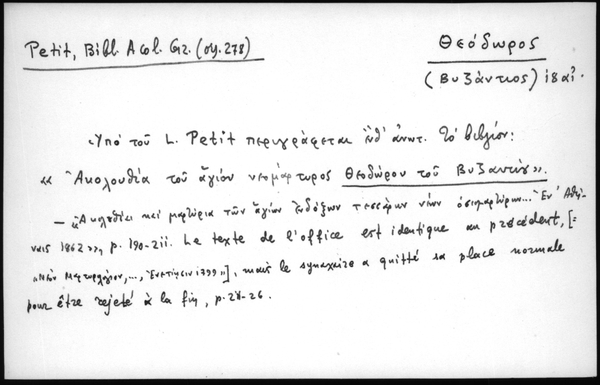 Petit, Bibl. Acol. Gr. (σχ. 278)
Θεόδωρος
(Βυζάντιος)
Ὑπό τοῦ L. Petit περιγράφεται ἔνθ' ἀνωτ. τὸ βιβλίον:
« Ἀκολουθία τοῦ ἁγίου νεομάρτυρος Θεοδώρου τοῦ Βυζαντίου».
— «Ἀκολουθίαι καὶ μαρτύρια τῶν ἁγίων ἐνδόξων τεσσάρων νέων ὁσιομαρτύρων... Ἐν Ἀθή-
ναις 1862», p. 190-211. Le texte de l'office est identique au précédent, [=
«Νέον Μαρτυρολόγιον,..., Ἐνετίησιν 1799»], mais le synaxaire a quitté sa place normale
pour être rejeté à la fin, p.